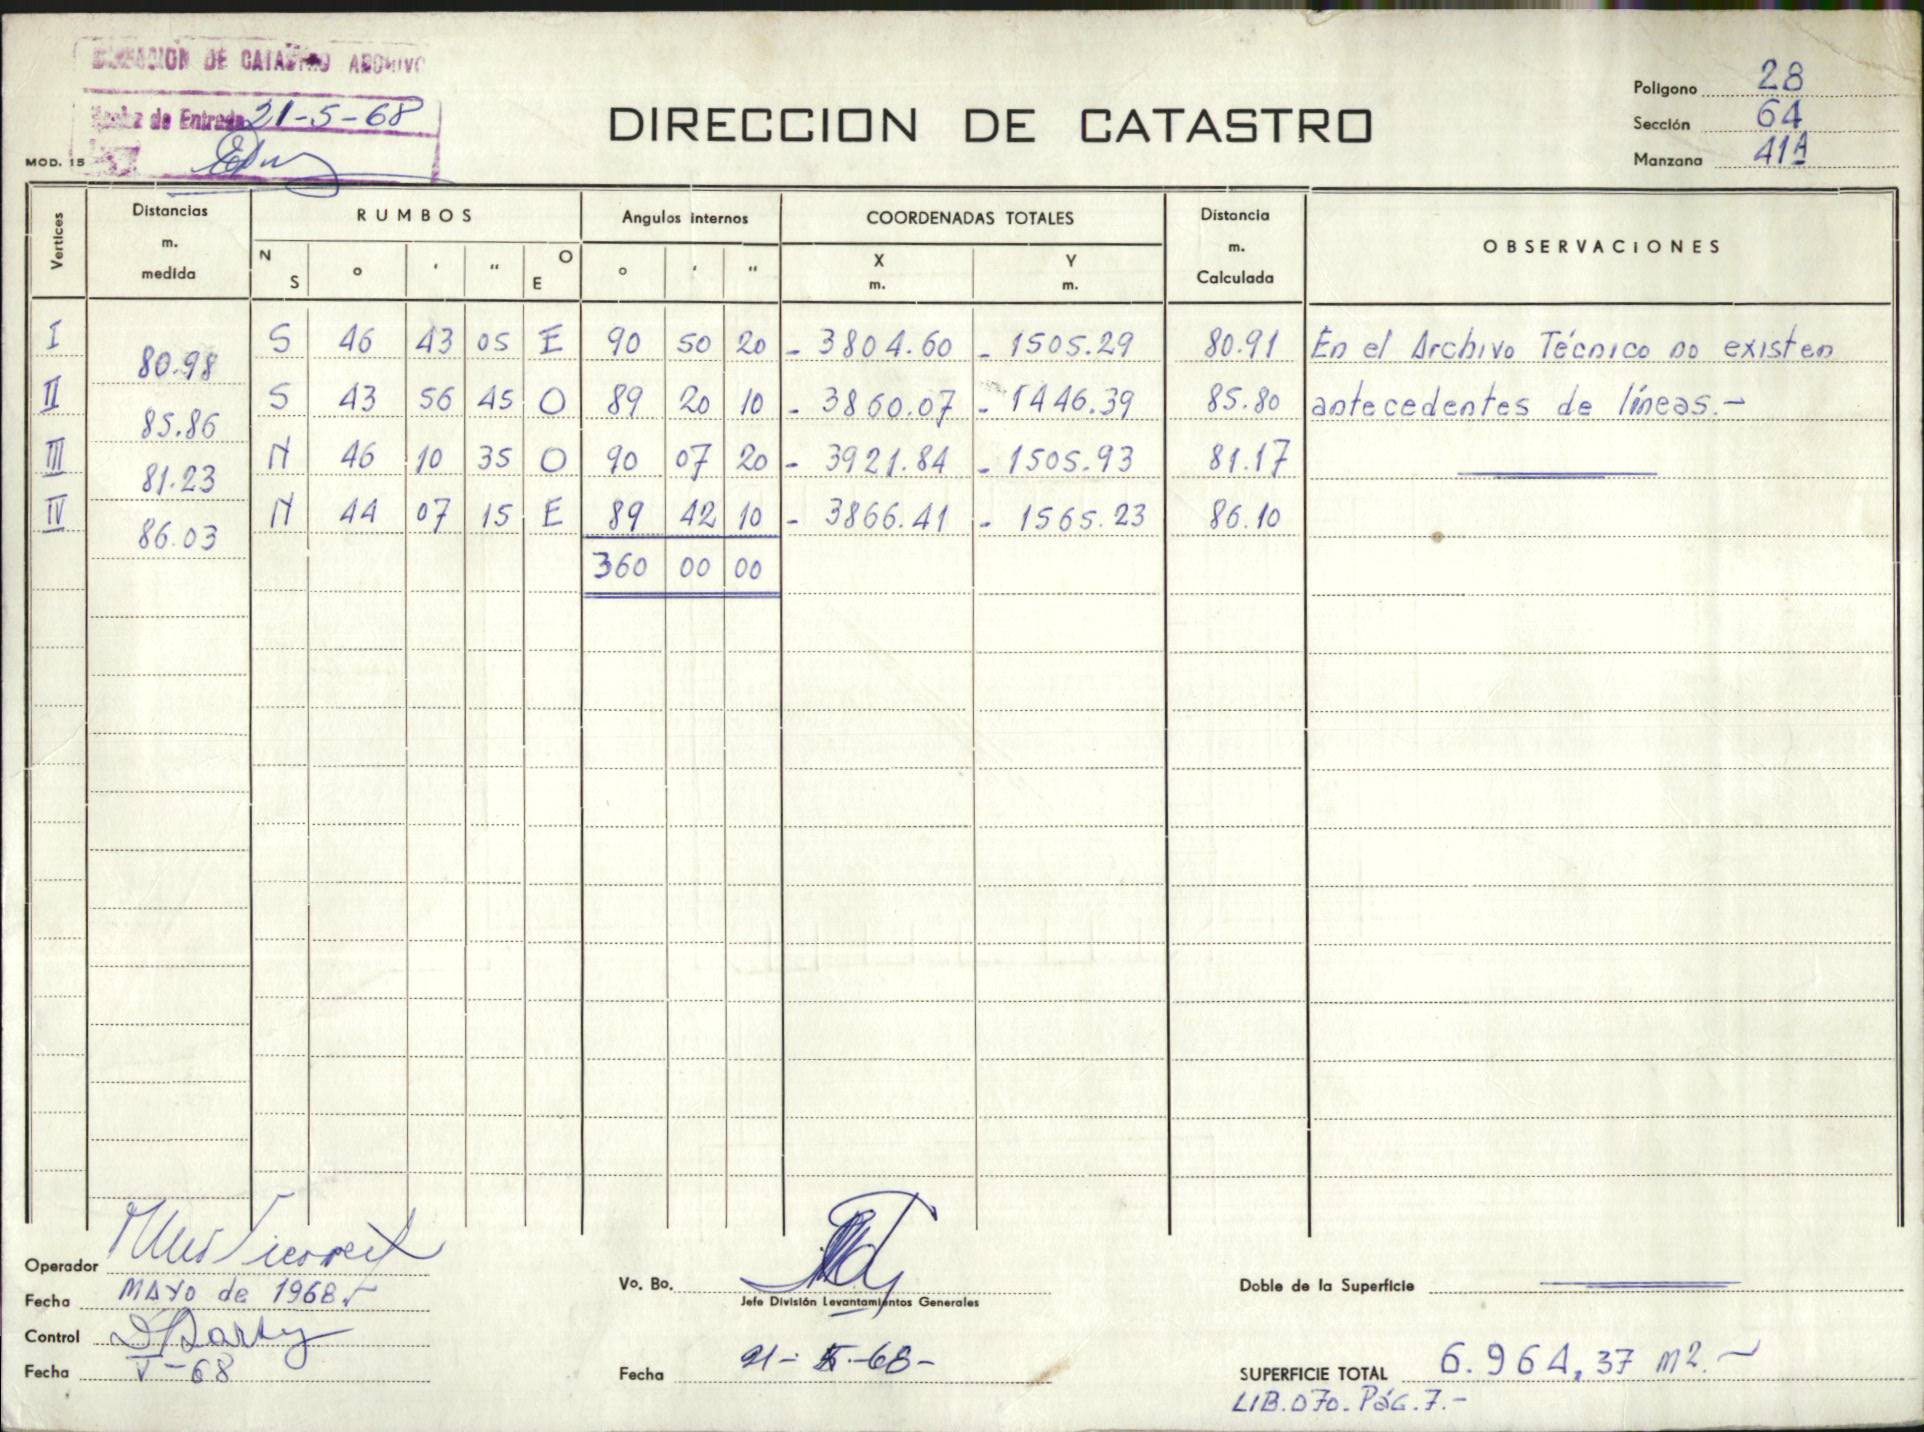 DIRECCION DE CATASTRO ARCHIVO
de Entrada 21-5-68
MOD. 15
DIRECCION DE CATASTRO
Poligono 28
Sección 64
Manzana 41A
Vertices Distancias m. medida RUMBOS Angulos internos COORDENADAS TOTALES Distancia m. Calculada OBSERVACiONES
N S ° ' " O E ° ' " X m. Y m.
I 80.98 S 46 43 05 E 90 50 20 - 3804.60 - 1505.29 80.91 En el Archivo Técnico no existen
II 85.86 S 43 56 45 O 89 20 10 - 3860.07 - 1446.39 85.80 antecedentes de líneas.-
III 81.23 N 46 10 35 O 90 07 20 - 3921.84 - 1505.93 81.17
IV 86.03 N 44 07 15 E 89 42 10 - 3866.41 - 1565.23 86.10
360 00 00
Operador
Fecha MAYO de 1968.
Control
Fecha V-68
Vo. Bo.
Jefe División Levantamientos Generales
Fecha 21- -68-
Doble de la Superficie
SUPERFICIE TOTAL 6.964,37 m2.-
LIB.070. PáG.7.-